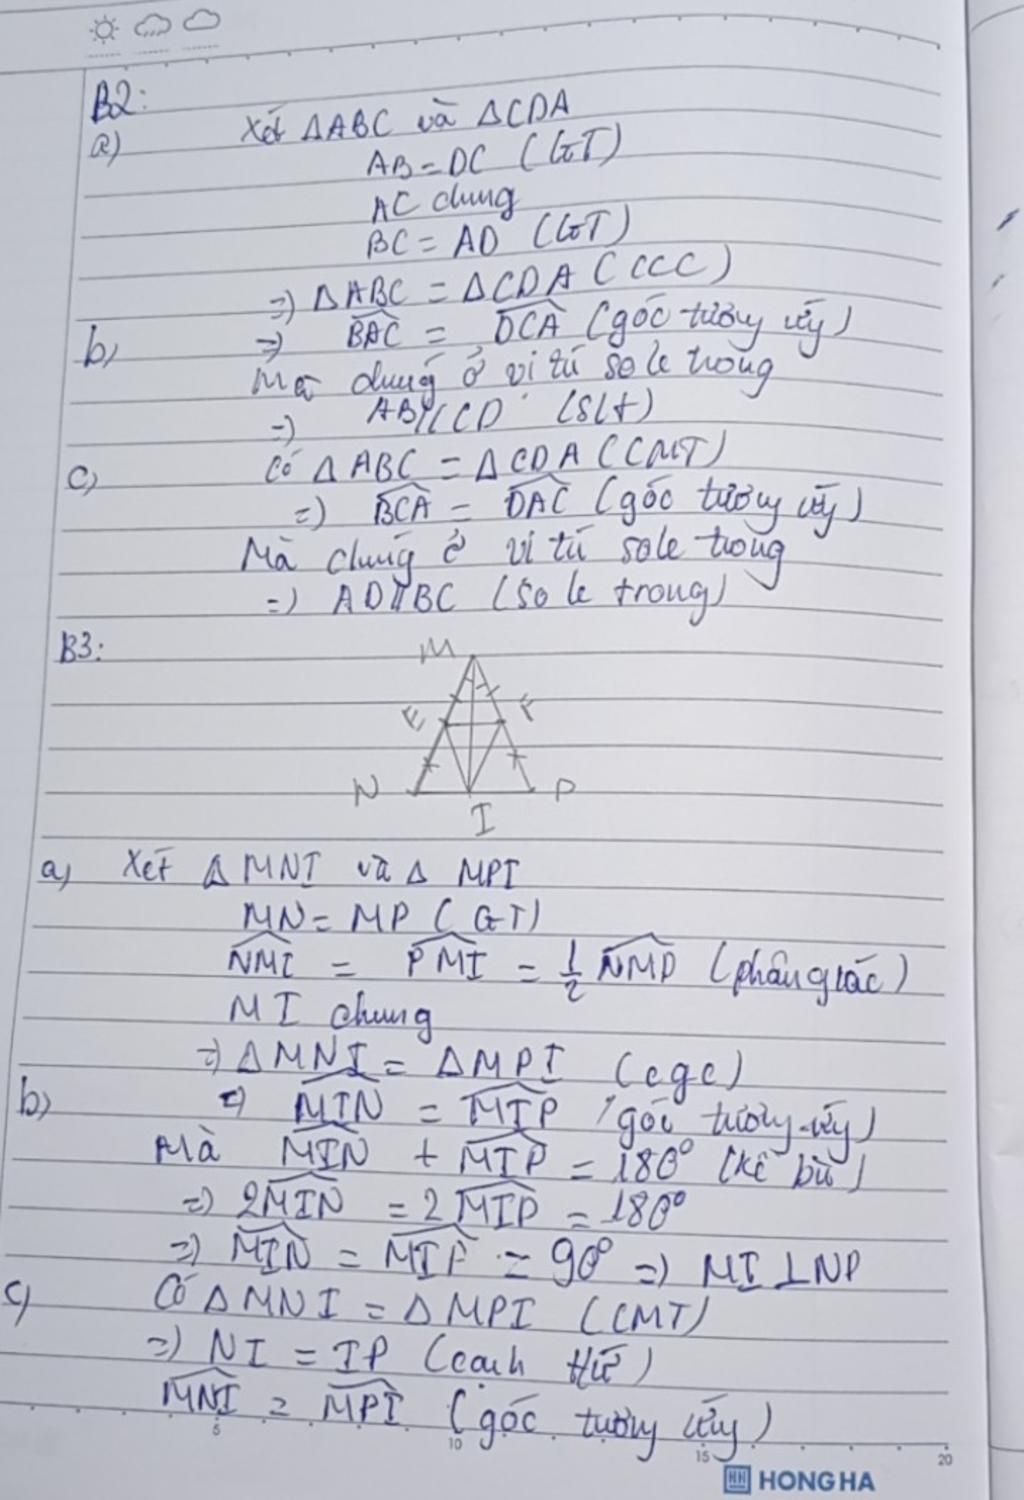 B2:
a) Xét ΔABC và ΔCDA
AB = DC (GT)
AC chung
BC = AD (GT)
=) ΔABC = ΔCDA (CCC)
b) =) BAC = DCA (góc tương ứng)
Mà chúng ở vị trí so le trong
=) AB//CD (slt)
c) Có ΔABC = ΔCDA (CMT)
=) BCA = DAC (góc tương ứng)
Mà chúng ở vị trí sole trong
=) AD//BC (so le trong)
B3:
M
E F
N P
I
a) Xét Δ MNI và Δ MPI
MN = MP (GT)
NMI = PMI = 1/2 NMP (phân giác)
MI chung
=) ΔMNI = ΔMPI (cgc)
b) =) MIN = MIP (góc tương ứng)
Mà MIN + MIP = 180° (kề bù)
=) 2MIN = 2MIP = 180°
=) MIN = MIP = 90° =) MI ⊥ NP
c) Có ΔMNI = ΔMPI (CMT)
=) NI = IP (cạnh tứ)
MNI = MPI (góc tương ứng)
5 10 15 20
HH HONG HA